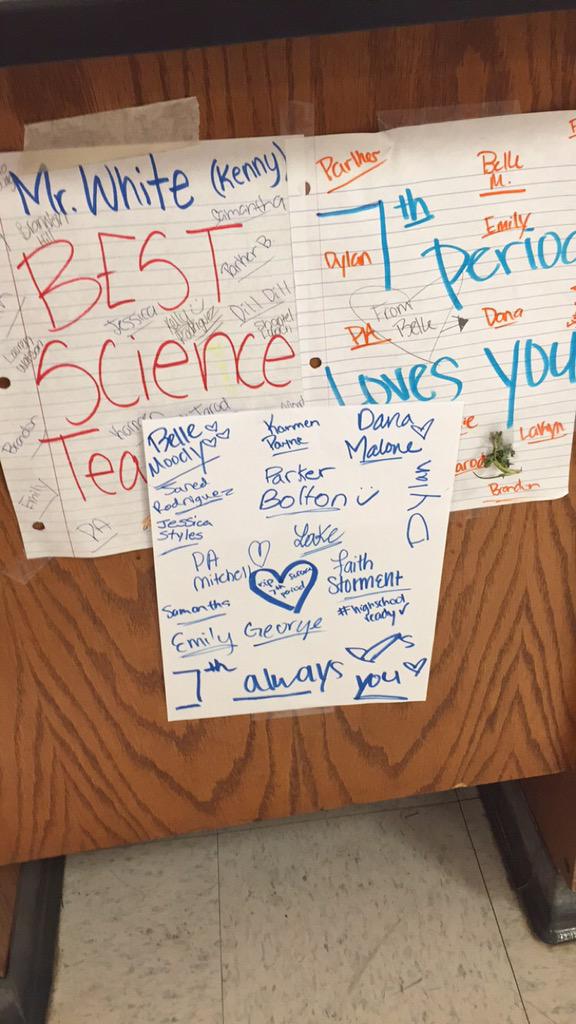 Mr. White (Kenny)
Samantha
BEST
Parker B
Jessica
Dill Dill
Science
Tea
Brandon
Emily
PA
Parker
Belle
M.
7th
Emily
Dylan
Period
From
Belle
PA
Dana
Loves You
Lakyn
Brandon
Belle
Moody
Karmen
Dana
Malone
Jared
Rodriguez
Parker
Bolton
Dylan
Jessica
Styles
Lake
PA
Mitchell
rip
7th
period
Faith
Storment
#highschool
ready
Samantha
Emily George
7th always
you